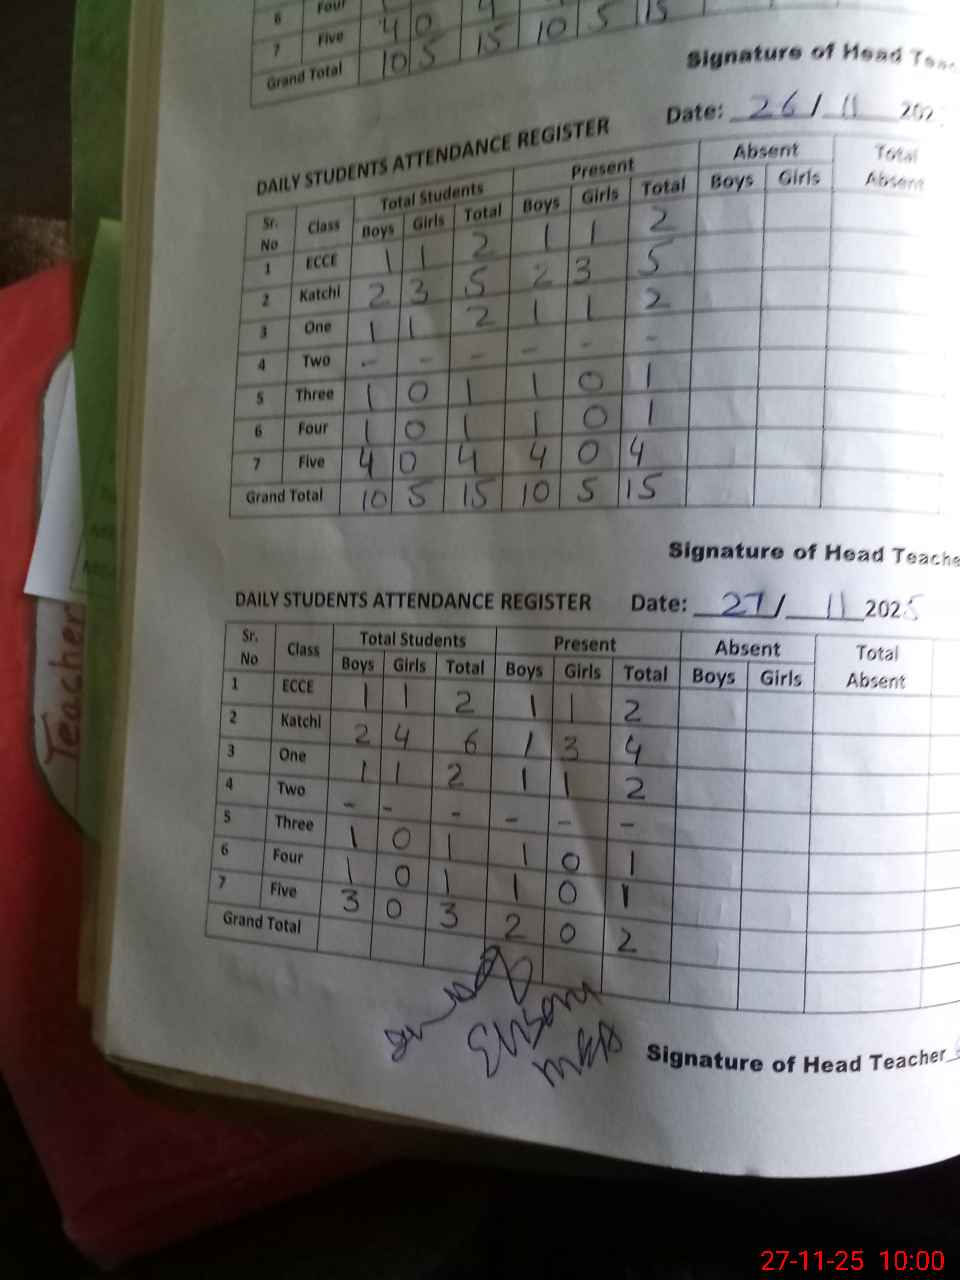 6 Four 4
7 Five 4 0 15 10 5 15
Grand Total 10 5 15
Signature of Head Teac
Date: 26/11 202
DAILY STUDENTS ATTENDANCE REGISTER
Sr. No Class Total Students Present Absent Total Absent
Boys Girls Total Boys Girls Total Boys Girls
1 ECCE 1 1 2 1 1 2
2 Katchi 2 3 5 2 3 5
3 One 1 1 2 1 1 2
4 Two - - - - - -
5 Three 1 0 1 1 0 1
6 Four 1 0 1 1 0 1
7 Five 4 0 4 4 0 4
Grand Total 10 5 15 10 5 15
Signature of Head Teache
DAILY STUDENTS ATTENDANCE REGISTER Date: 27/11 2025
Sr. No Class Total Students Present Absent Total Absent
Boys Girls Total Boys Girls Total Boys Girls
1 ECCE 1 1 2 1 1 2
2 Katchi 2 4 6 1 3 4
3 One 1 1 2 1 1 2
4 Two - - - - - -
5 Three 1 0 1 1 0 1
6 Four 1 0 1 1 0 1
7 Five 3 0 3 2 0 2
Grand Total
Signature of Head Teacher
Teacher
27-11-25 10:00